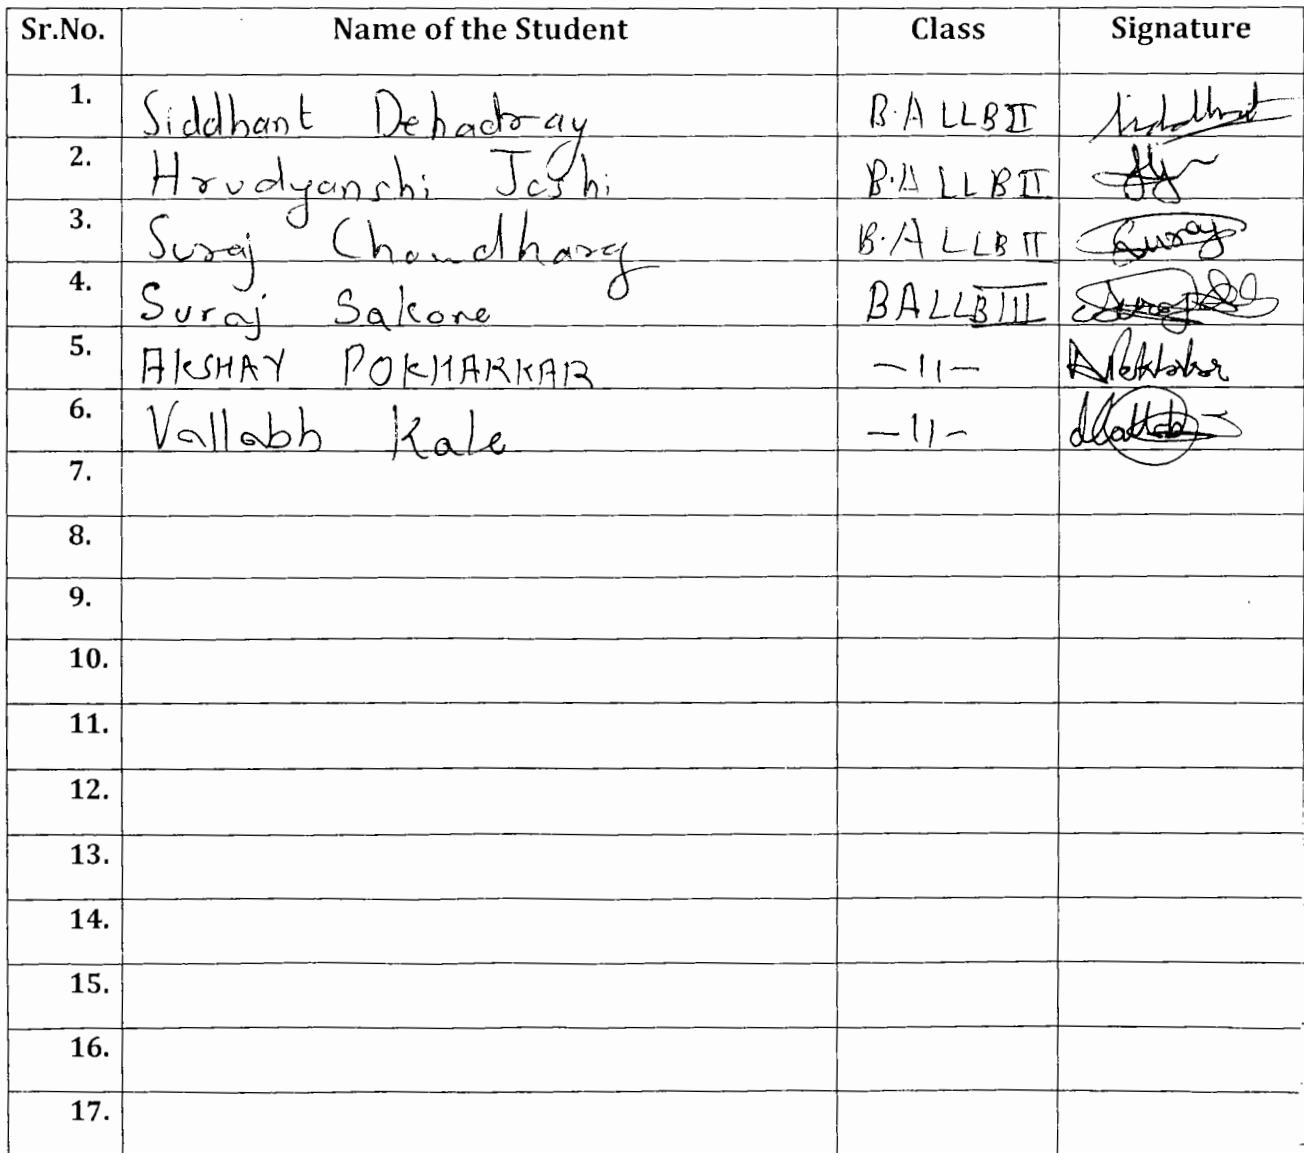 Sr.No. Name of the Student Class Signature
1. Siddhant Dehadray B.A LLB II Siddhant
2. Hrudyanshi Joshi B.A LLB II
3. Suraj Choudhary B.A LLB II Suraj
4. Suraj Sakore BALLB III
5. AKSHAY POKHARKAR —11—
6. Vallabh Kale —11—
7.
8.
9.
10.
11.
12.
13.
14.
15.
16.
17.